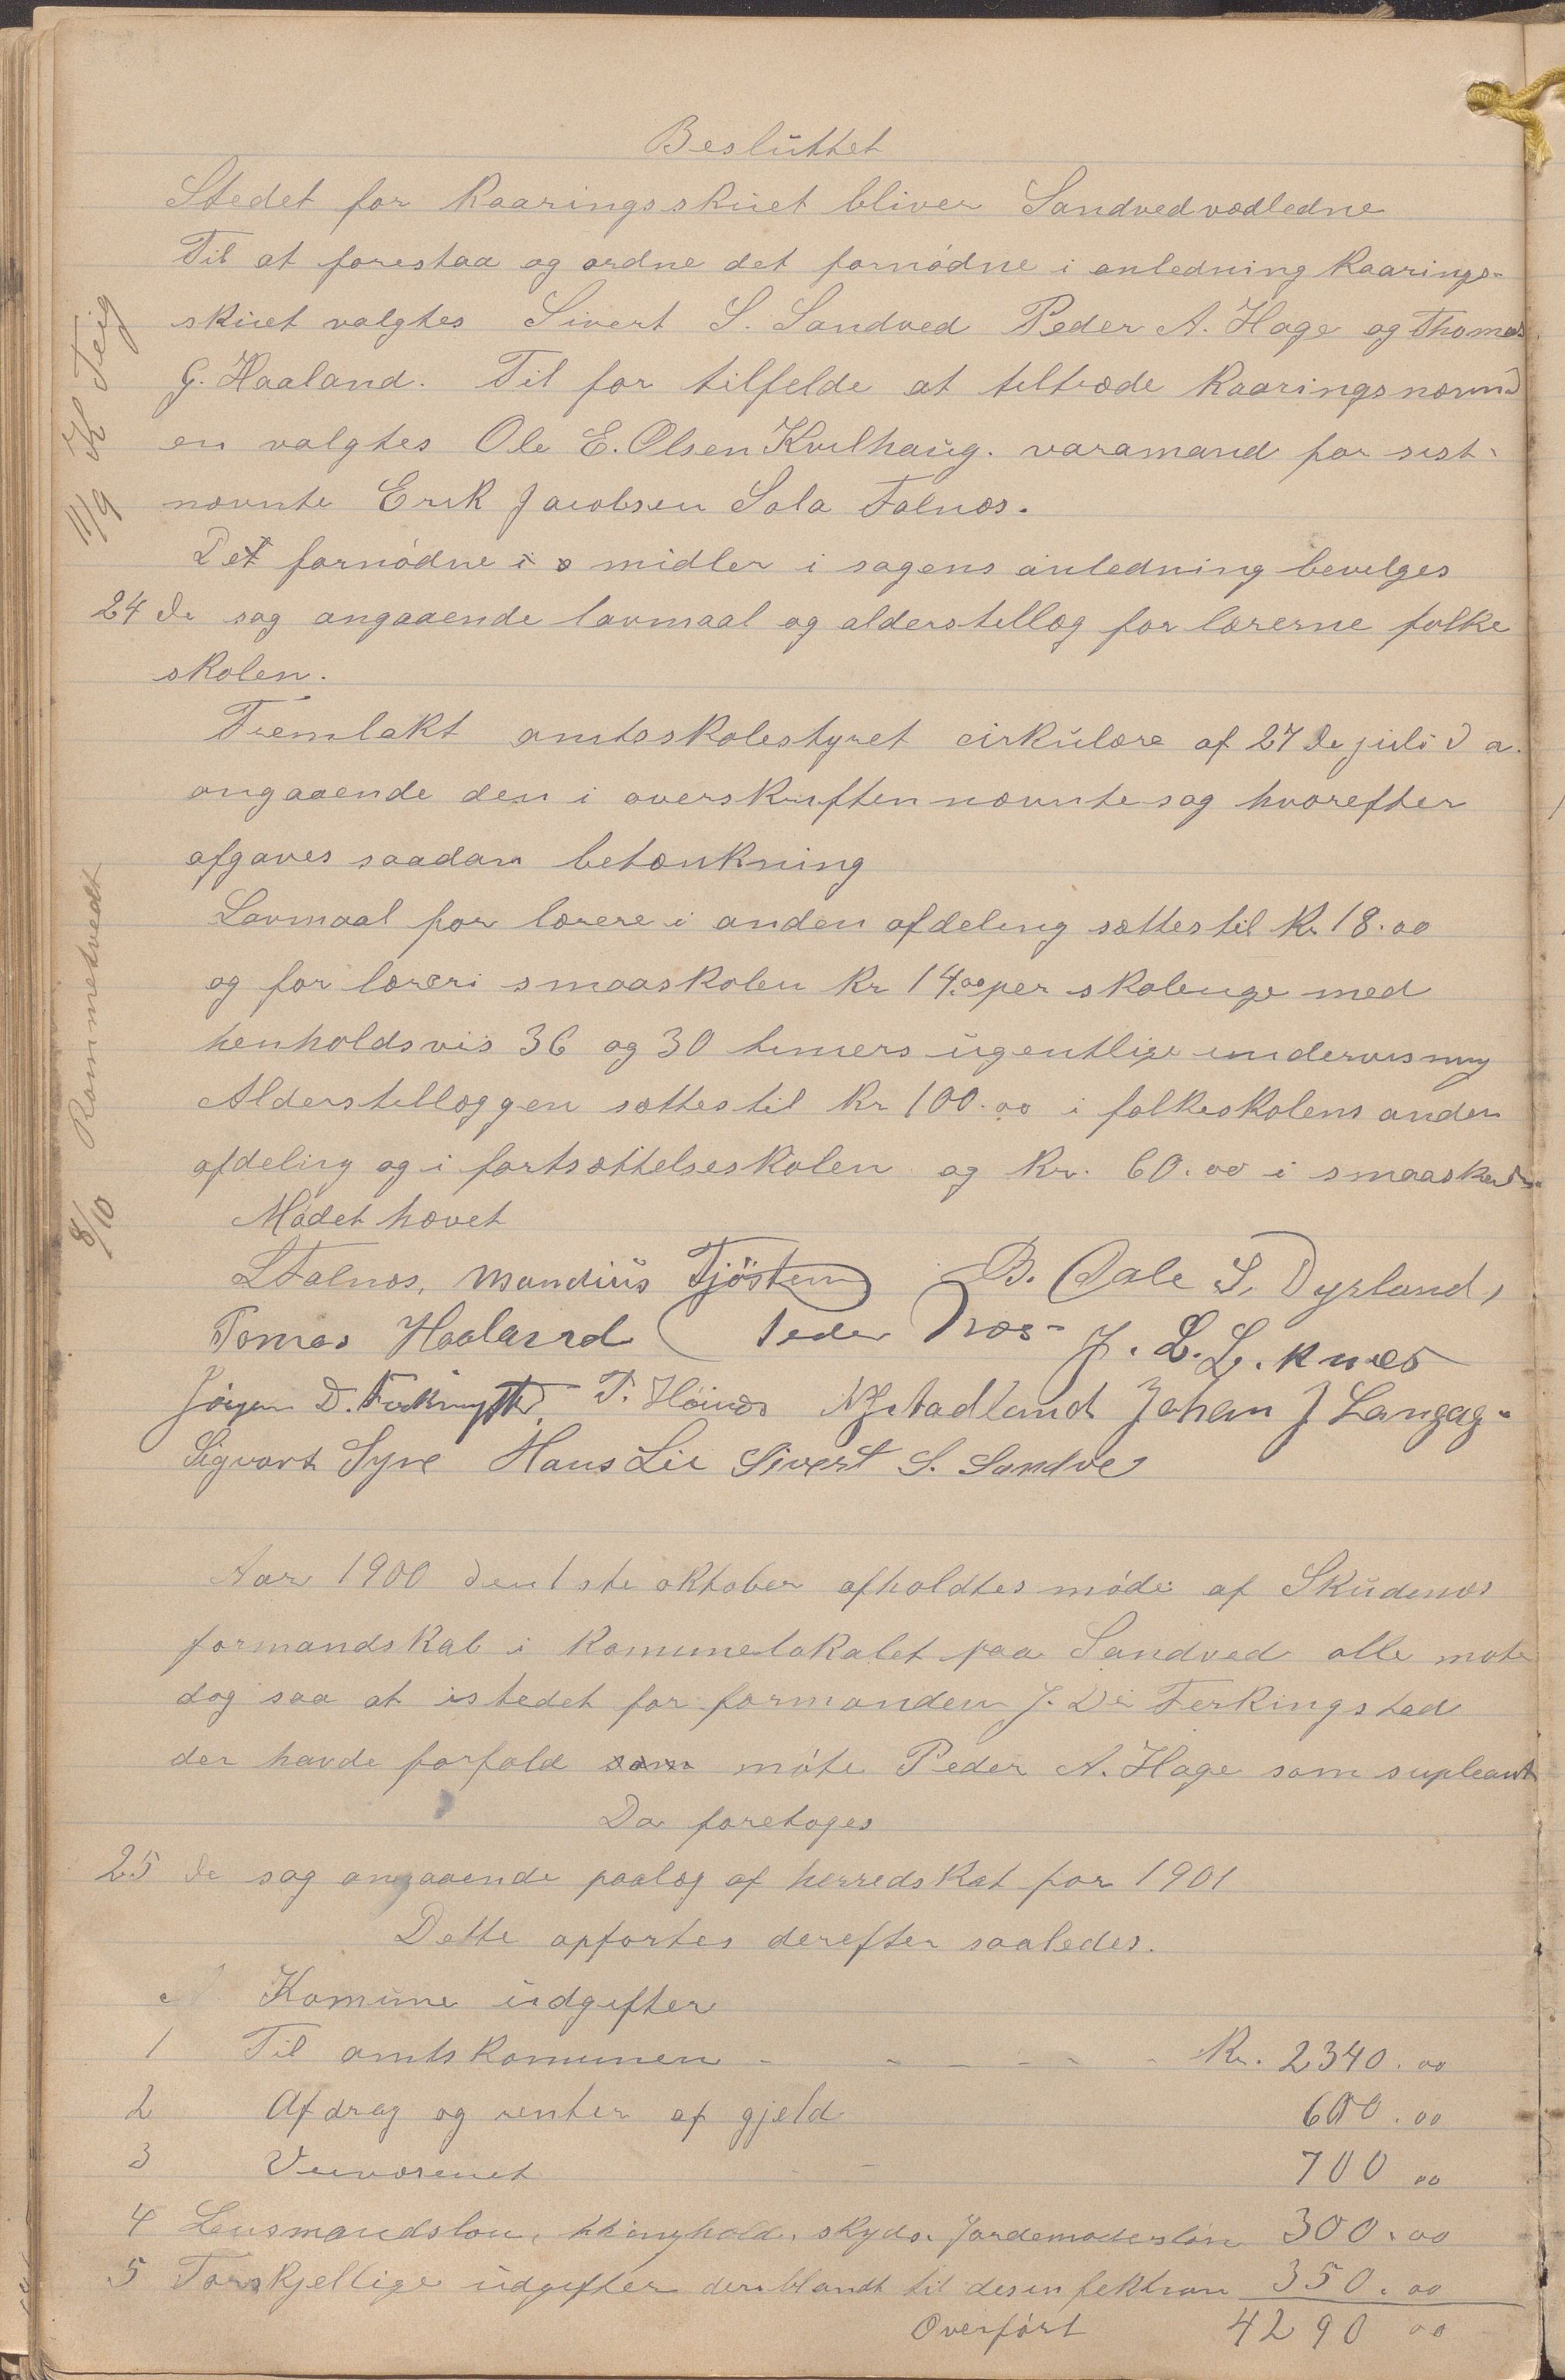 Besluttet
Stedet for Kaaringsskuet bliver Sandvedvodledne
Til at forestaa og ordne det fornødne i anledning Kaarings-
skuet valgtes Sivert S. Sandved Peder A. Hage og Thomas
G. Haaland. Til for tilfelde at tiltræde Kaaringsnævnd
en valgtes Ole E. Olsen Kvilhaug. varamand for sist-
nævnte Erik Jacobsen Sola Falnæs.
Det fornødne i midler i sagens anledning bevilges
24 de sag angaaende lavmaal og alderstillæg for lærerne folke
skolen.
Fremlakt amtsskolestyret cirkulære af 27 de juli d a.
angaaende den i overskriften nævnte sag hvorefter
afgaves saadan betænkning
Lavmaal for lærere i anden afdeling sættes til Kr 18.00
og for lærer i smaaskolen Kr 14.00 per skoleuge med
henholdsvis 36 og 30 timers ugentlige undervisning
Alderstillæggen sættes til Kr 100.00 i folkeskolens anden
afdeling og i fortsættelseskolen og Kr. 60.00 i smaaskolen
Mødet hævet
L Falnæs, Mandius Tjøsten B. Dale S. Dyrland,
Tomas Haaland Peder Næs J. L. Liknes
Jørgen D. Ferkingstad T. Høinæs Stadland Johan J Langåg.
Sigvart Syre Hans Lie Sivert S. Sandve
Aar 1900 den 1ste oktober afholdtes møde af Skudenæs
formandskab i Komunelokalet paa Sandved alle møte
dog saa at istedet for formanden J. D. Ferkingstad
der havde forfald som møte Peder A. Hage som supleant
Da foretoges
25 de sag angaaende paalæg af herredskat for 1901
Dette opførtes derefter saaledes.
A Komune udgifter
1 Til amtskomunen - - - - - - Kr. 2340.00
2 Afdrag og renter af gjeld 600.00
3 Veivæsenet - - 700 00
4 Lensmandsløn, thinghold, skyds. Jordemoderløn 300.00
5 Forskjellige udgifter deriblandt til desinfektion 350.00
Overført 4290 00
11/9 K Teig
8/10 Rommetvedt